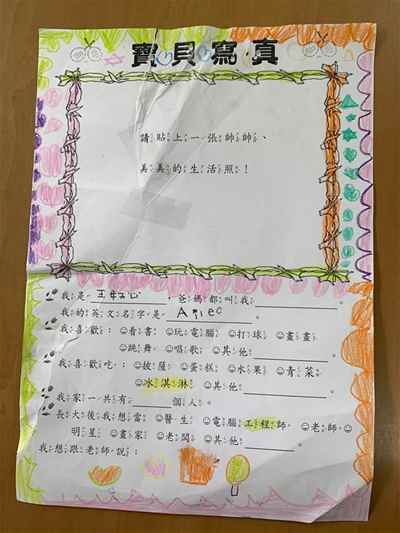 寶貝寫真
請貼上一張帥帥、
美美的生活照！
我是 ，爸媽都叫我
我的英文名字是
我喜歡：☺看書 ☺玩電腦 ☺打球 ☺畫畫
☺跳舞 ☺唱歌 ☺其他
我喜歡吃：☺披薩 ☺蛋糕 ☺水果 ☺青菜
☺冰淇淋 ☺其他
我家一共有 個人。
長大後我想當☺醫生 ☺電腦工程師 ☺老師 ☺
明星 ☺畫家 ☺老闆 ☺其他
我想跟老師說：